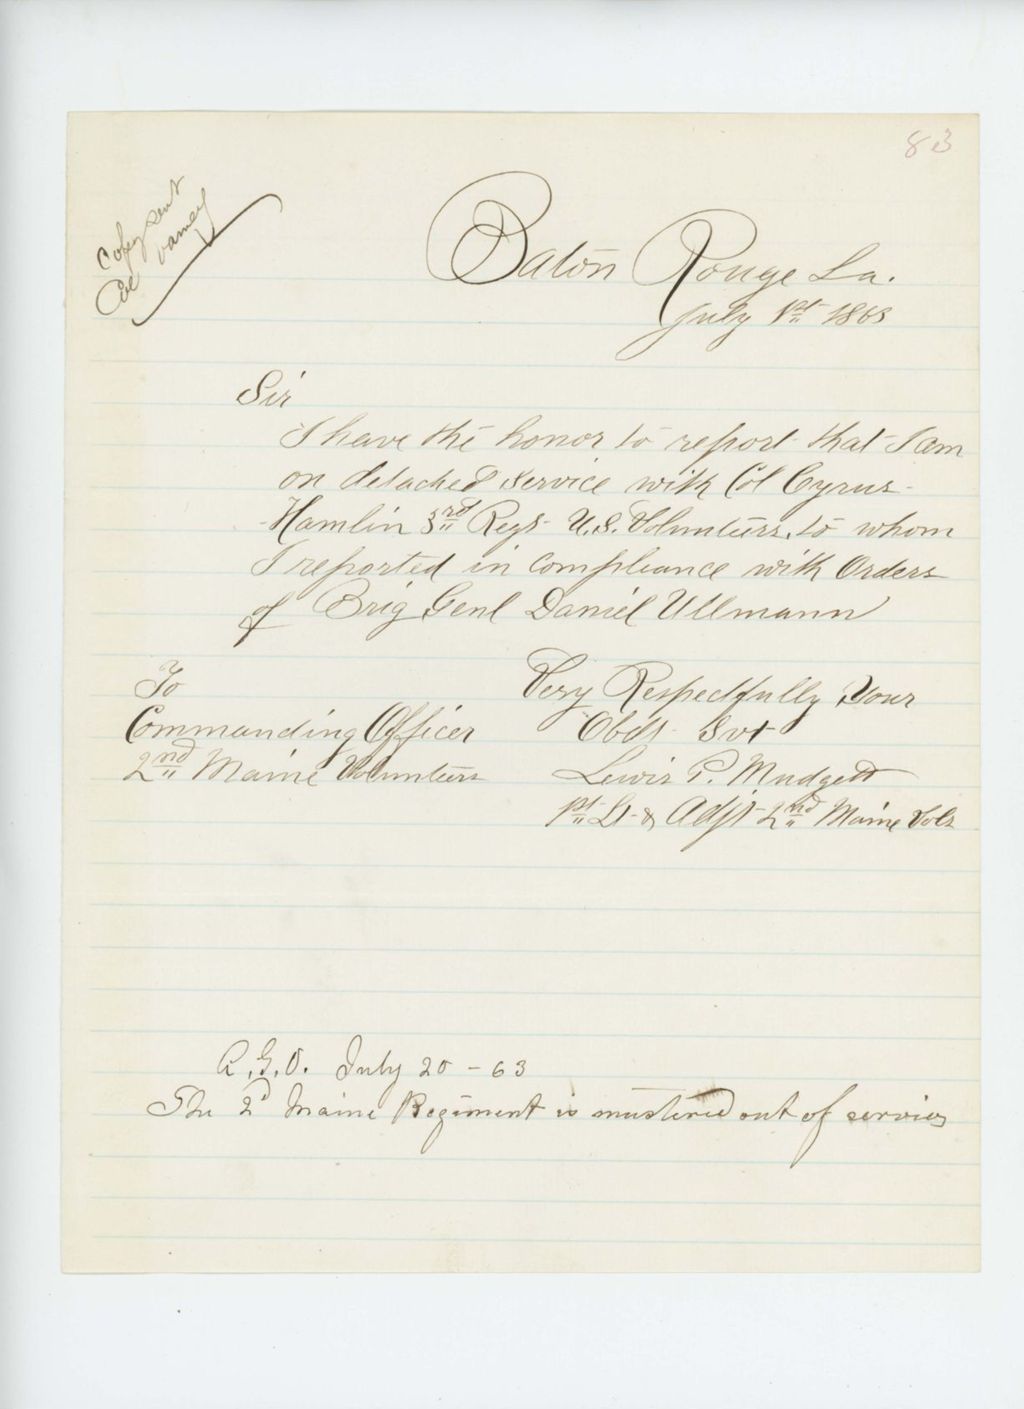 83
Copy sent
Col Varney
Baton Rouge La.
July 1st 1863
Sir
I have the honor to report that I am
on detached service with Col Cyrus
Hamlin 3rd Regt U.S. Volunteers, to whom
I reported in compliance with Orders
of Brig Genl Daniel Ullmann
To
Commanding Officer
2nd Maine Volunteers
Very Respectfully Your
Obdt Svt
Lewis P. Mudgett
1st Lt & Adjt 2nd Maine Vols
A.G.O. July 20 - 63
The 2d Maine Regiment is mustered out of service